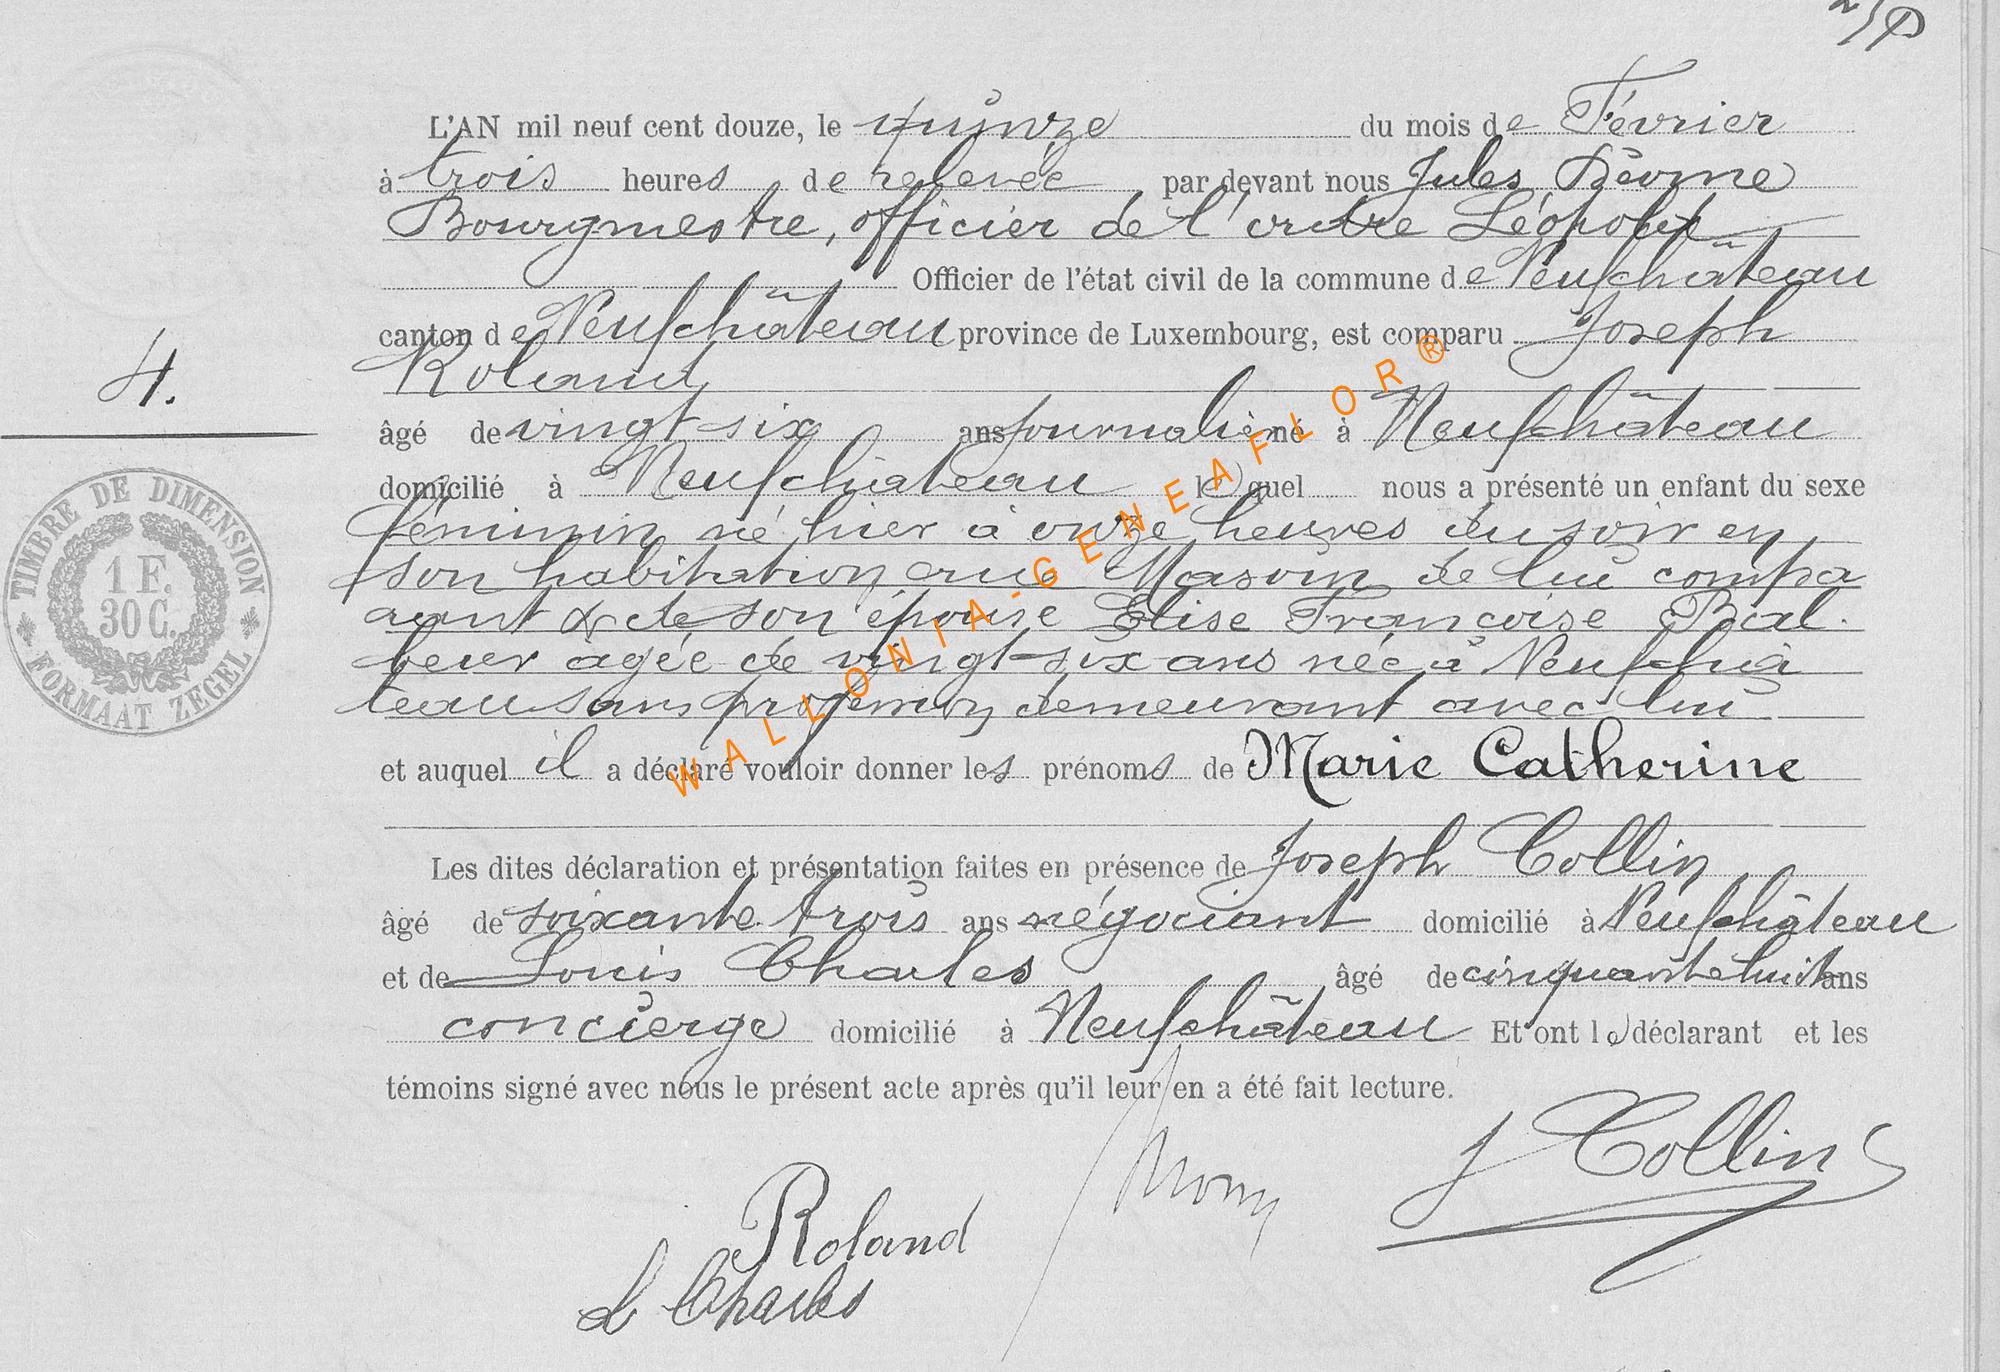 L'AN mil neuf cent douze, le quinze du mois de Février
à trois heures de relevée par devant nous Jules
Bourgmestre, officier de l'ordre Léopold
Officier de l'état civil de la commune de Neufchâteau
canton de Neufchâteau province de Luxembourg, est comparu Joseph
Roland
4.
âgé de vingt-six ans journalier né à Neufchâteau
domicilié à Neufchâteau lequel nous a présenté un enfant du sexe
féminin né hier à onze heures du soir en
son habitation rue Massin de lui compa
rant & de son épouse Elise Françoise
agée de vingt-six ans née à Neufchâ
teau sans profession demeurant avec lui
et auquel il a déclaré vouloir donner les prénoms de Marie Catherine
Les dites déclaration et présentation faites en présence de Joseph Collin
âgé de soixante trois ans négociant domicilié à Neufchâteau
et de Louis Charles âgé de cinquante huit ans
concierge domicilié à Neufchâteau Et ont le déclarant et les
témoins signé avec nous le présent acte après qu'il leur en a été fait lecture.
J Collin
Roland
L Charles
TIMBRE DE DIMENSION
1 F.
30 C.
FORMAAT ZEGEL
WALLONIA-GENEAFLOR®